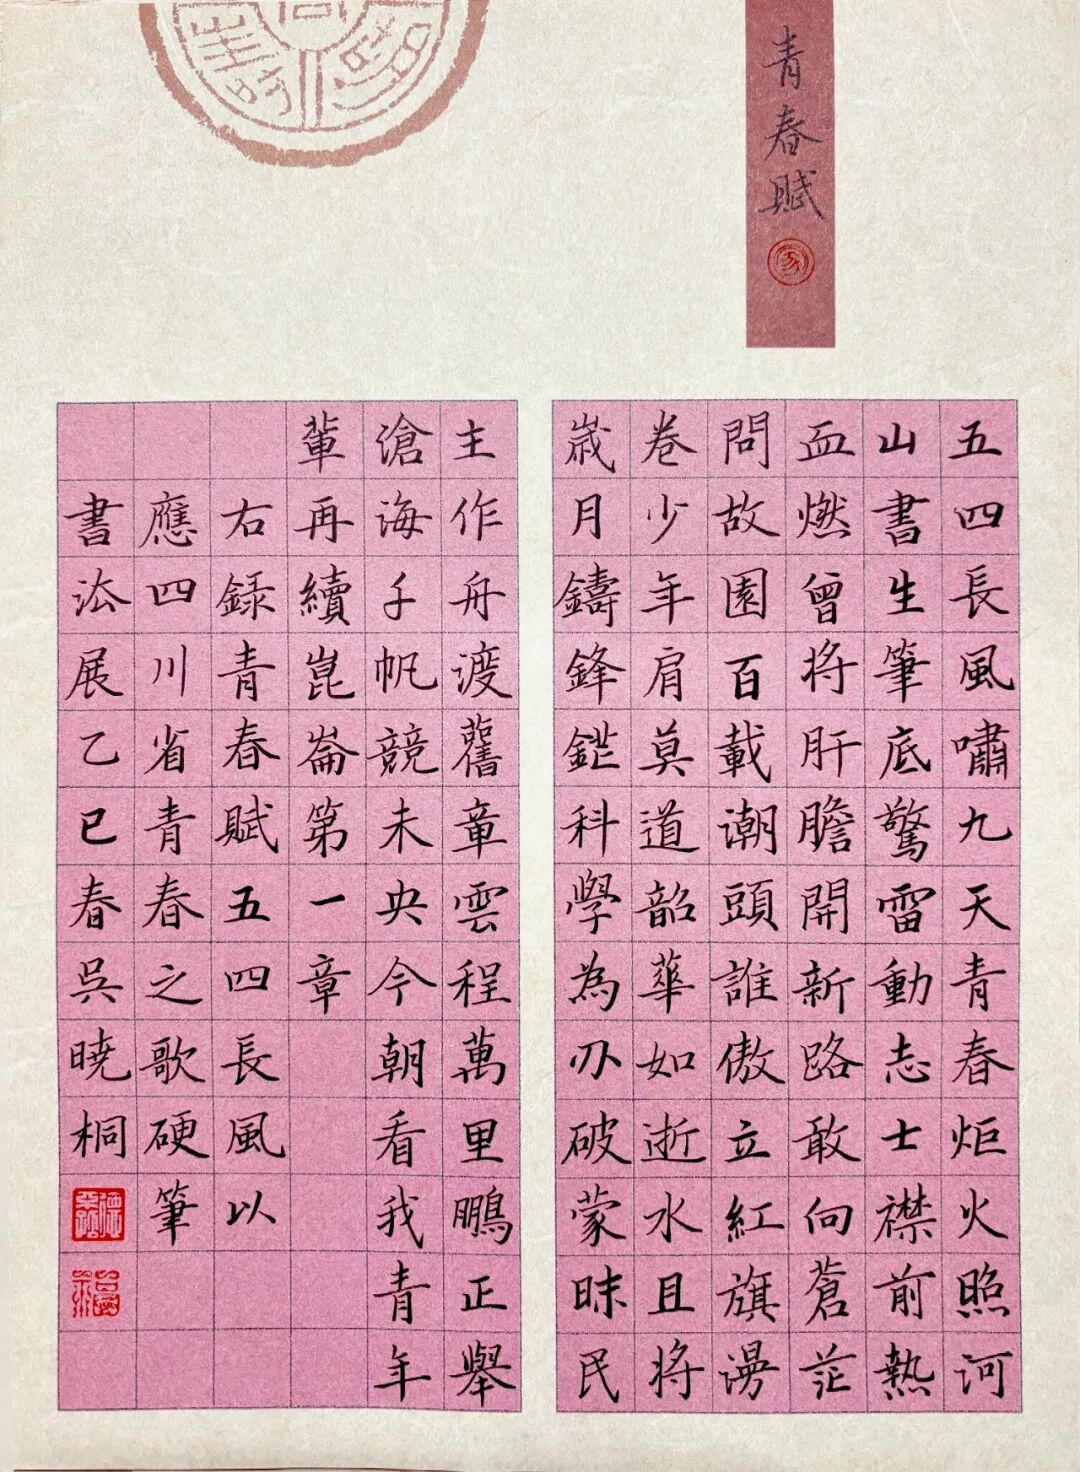 青春賦
五四長風嘯九天青春炬火照河
山書生筆底驚雷動志士襟前熱
血燃曾将肝膽開新路敢向蒼茫
問故園百載潮頭誰傲立紅旗漫
卷少年肩莫道韶華如逝水且将
歲月鑄鋒鋩科學為刅破蒙昧民
主作舟渡舊章雲程萬里鵬正舉
滄海千帆競未央今朝看我青年
輩再續崑崙第一章
右録青春賦五四長風以
應四川省青春之歌硬筆
書法展乙巳春吳曉桐